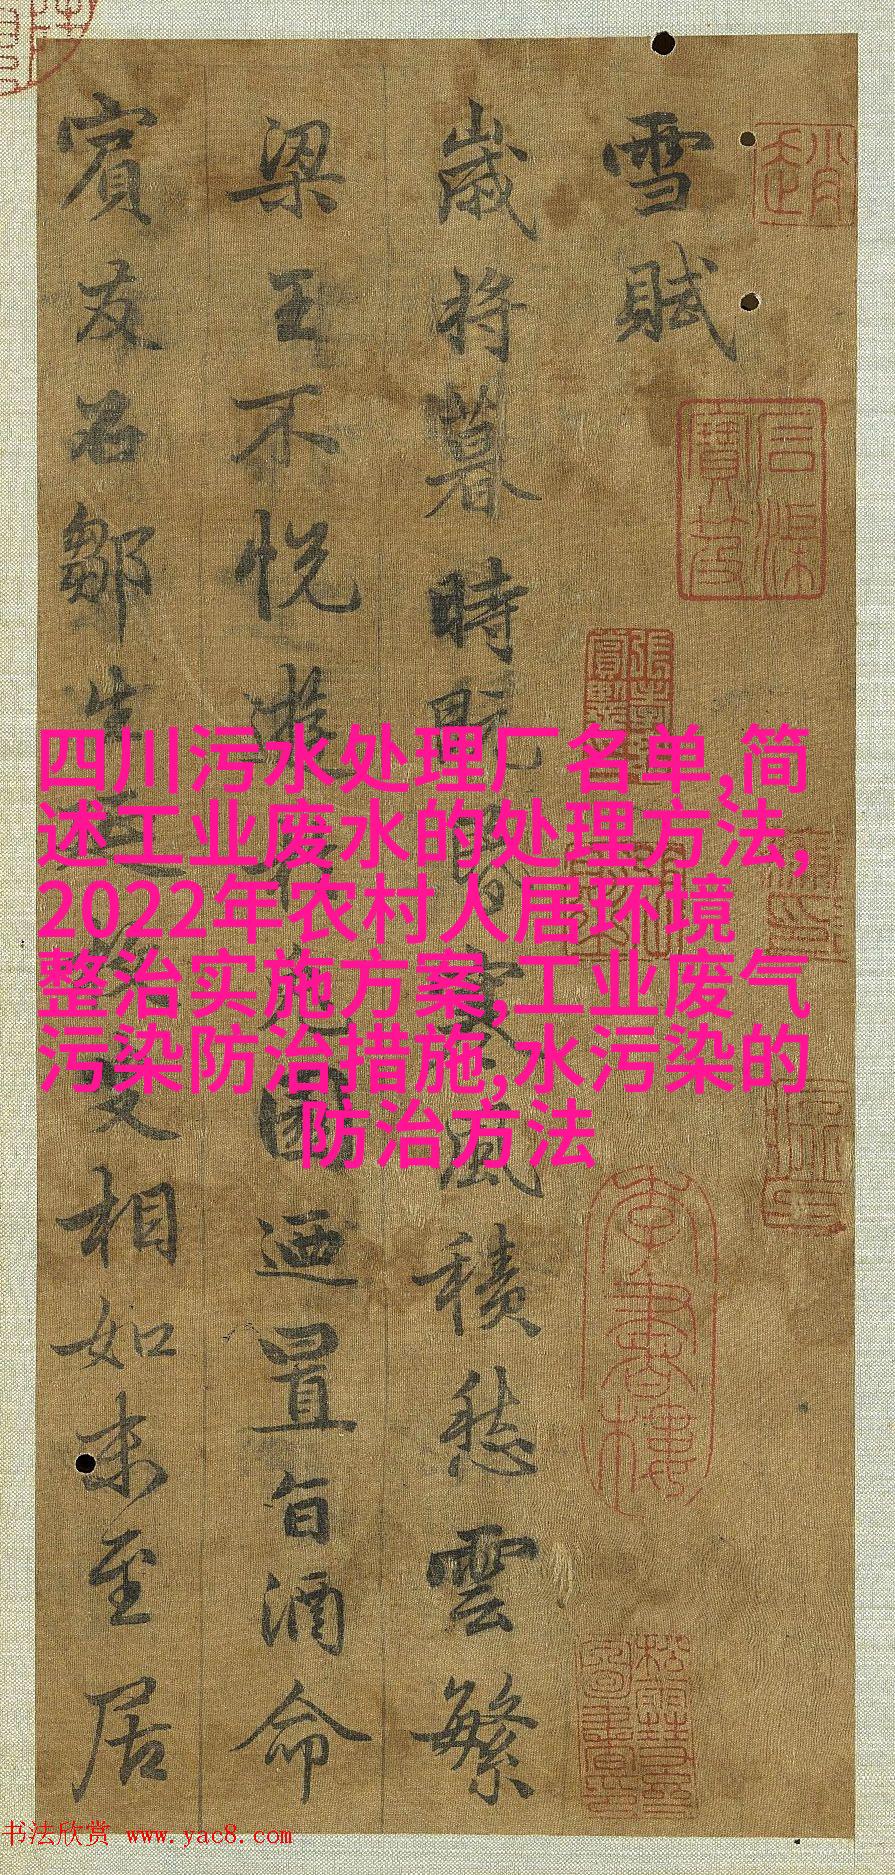 雪賦
歲將暮時既昏寒風積愁雲繁
梁王不悅遊於兔園迺置旨酒命
賓友召鄒生延枚叟相如末至居
四川污水处理厂名单,简
述工业废水的处理方法,
2022年农村人居环境
整治实施方案,工业废气
污染防治措施,水污染的
防治方法
书法欣赏 www.yac8.com